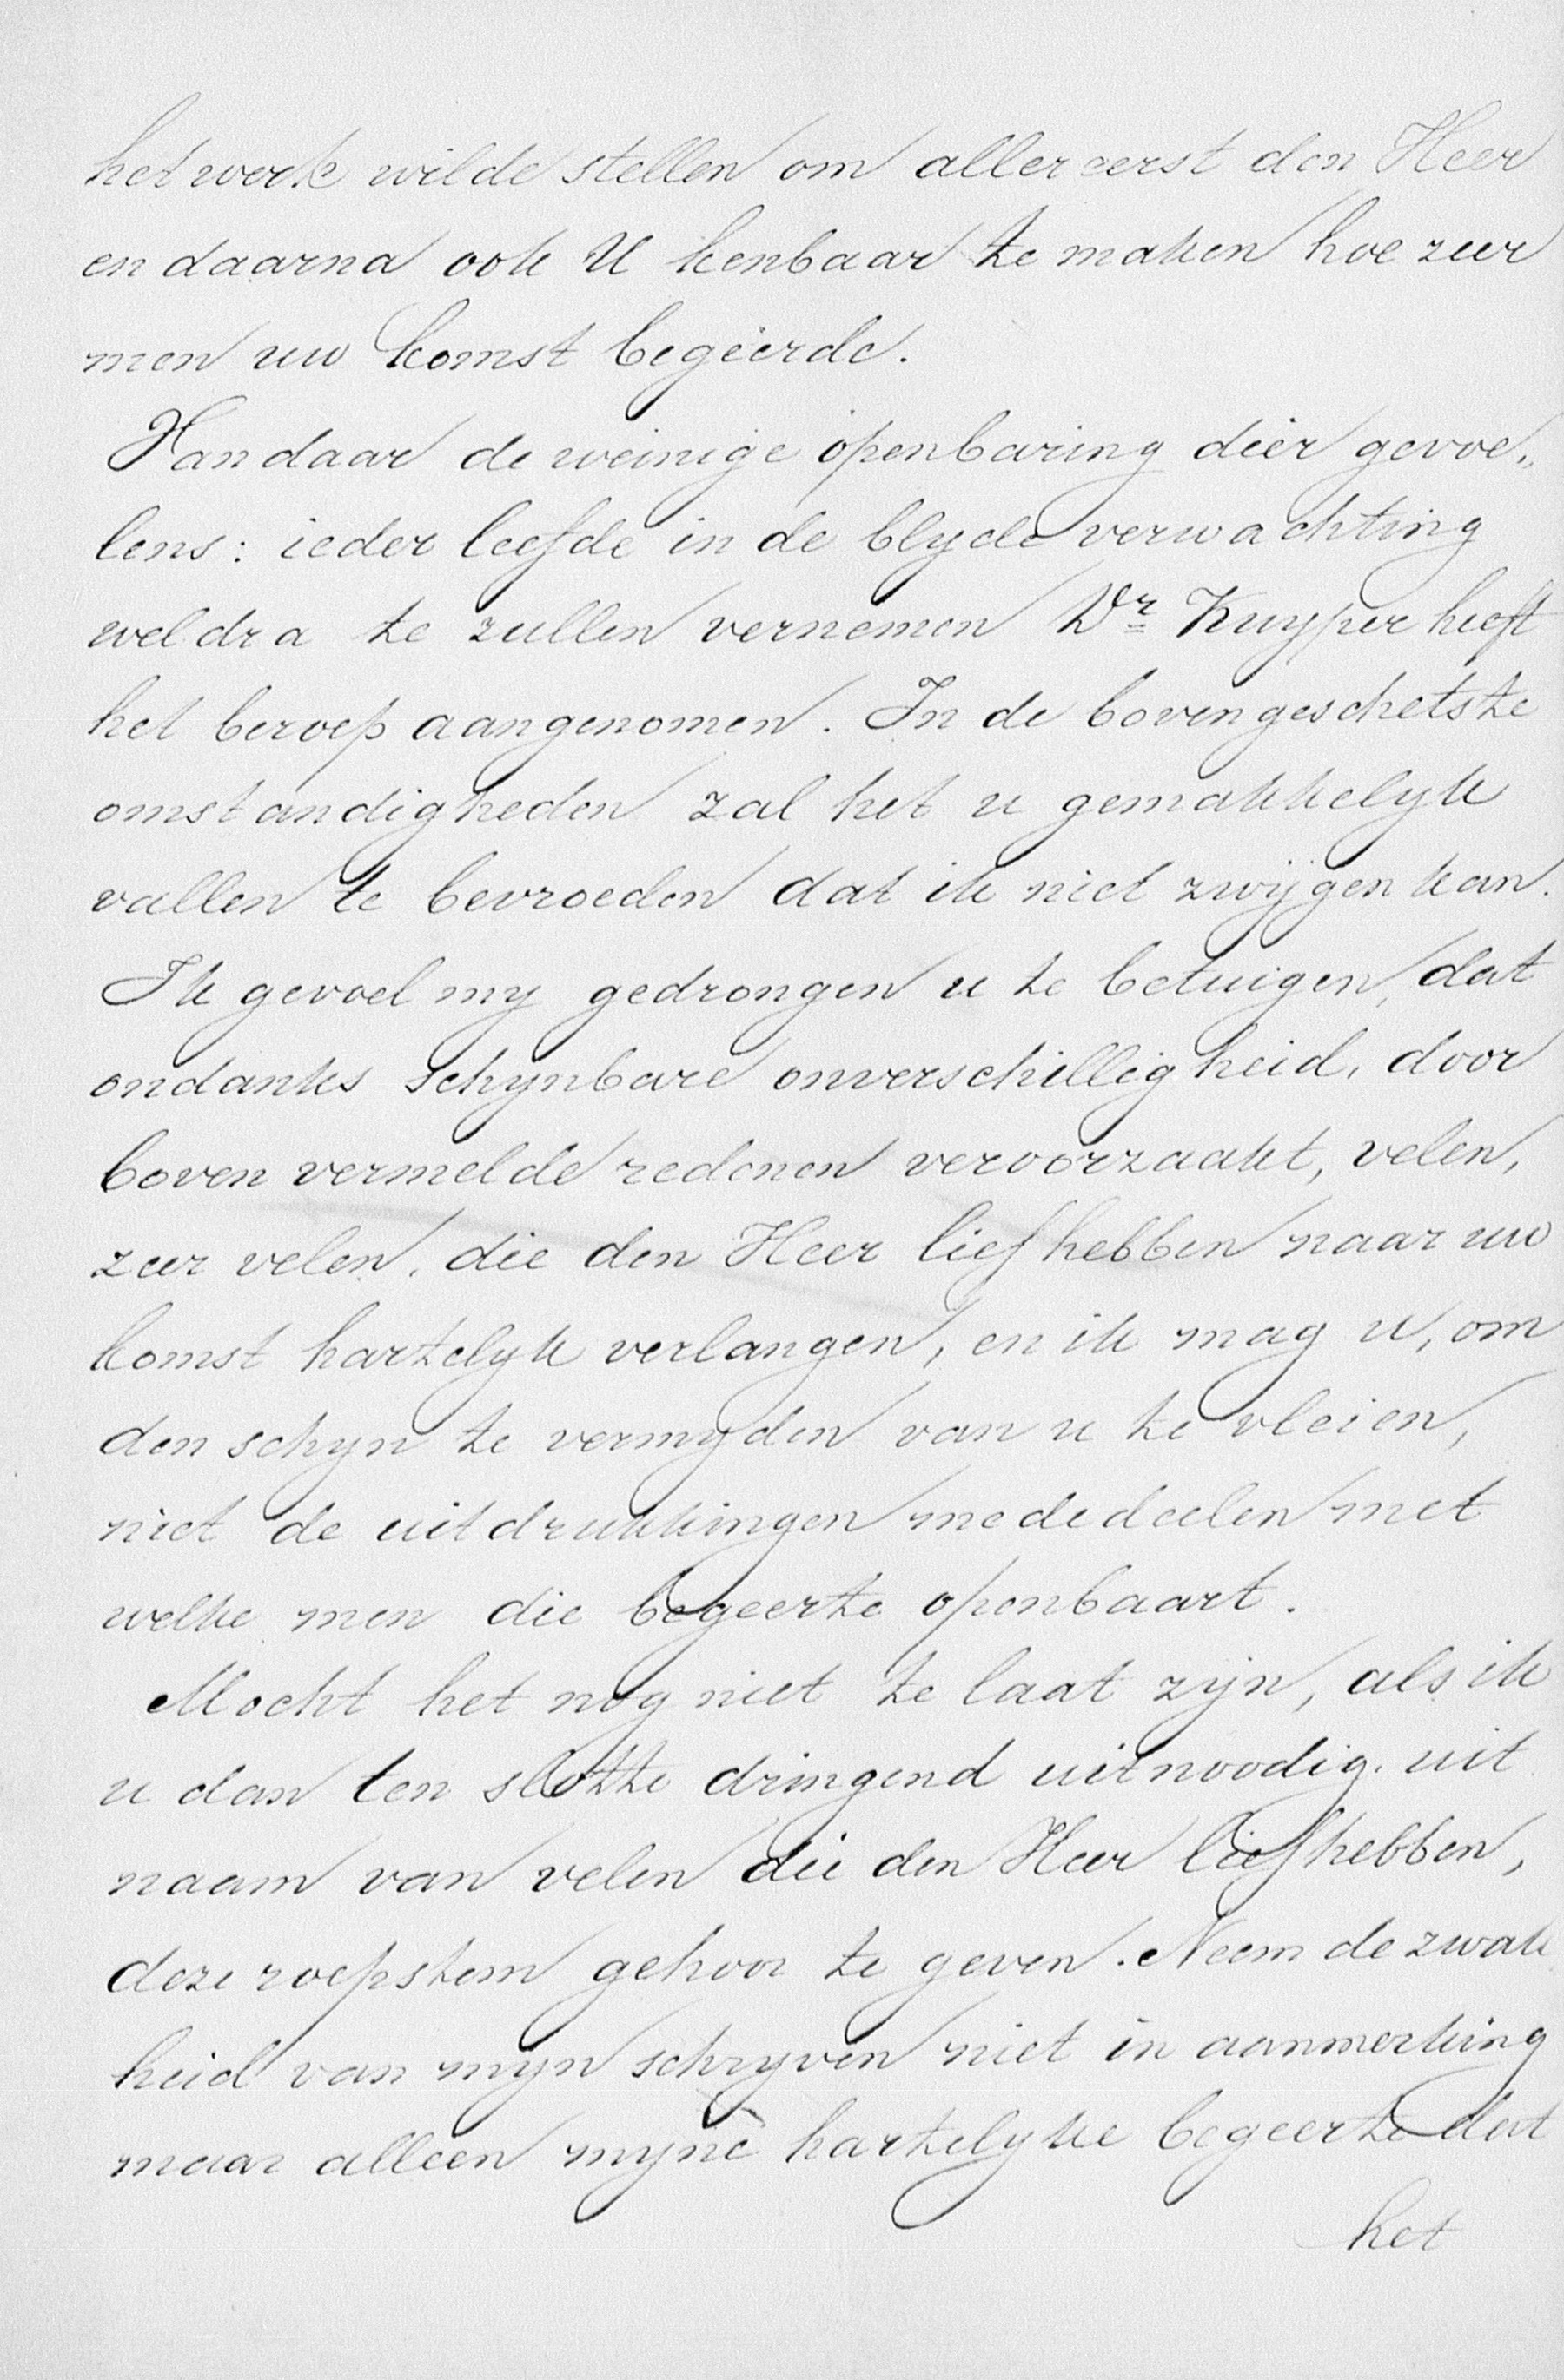 het werk wilde stellen om allereerst den Heer
en daarna ook U kenbaar te maken hoe zeer
men uw komst begeerde.
Van daar de weinige openbaring dier gevoe„
lens: ieder leefde in de blyde verwachting
weldra te zullen vernemen Dr Kuyper heeft
het beroep aangenomen. In de bovengeschetste
omstandigheden zal het u gemakkelyk
vallen te bevroeden dat ik niet zwijgen kan.
Ik gevoel my gedrongen u te betuigen, dat
ondanks schynbare onverschilligheid, door
boven vermelde redenen veroorzaakt, velen,
zeer velen, die den Heer lief hebben naar uw
komst hartelyk verlangen, en ik mag u, om
den schyn te vermyden van u te vleien,
niet de uitdrukkingen mededeelen met
welke men die begeerte openbaart.
Mocht het nog niet te laat zijn, als ik
u dan ten slotte dringend uitnoodig. uit
naam van velen die den Heer liefhebben,
deze roepstem gehoor te geven. Neem de zwak
heid van mijn schryven niet in aanmerking
maar alleen myne hartelyke begeerte dat
het